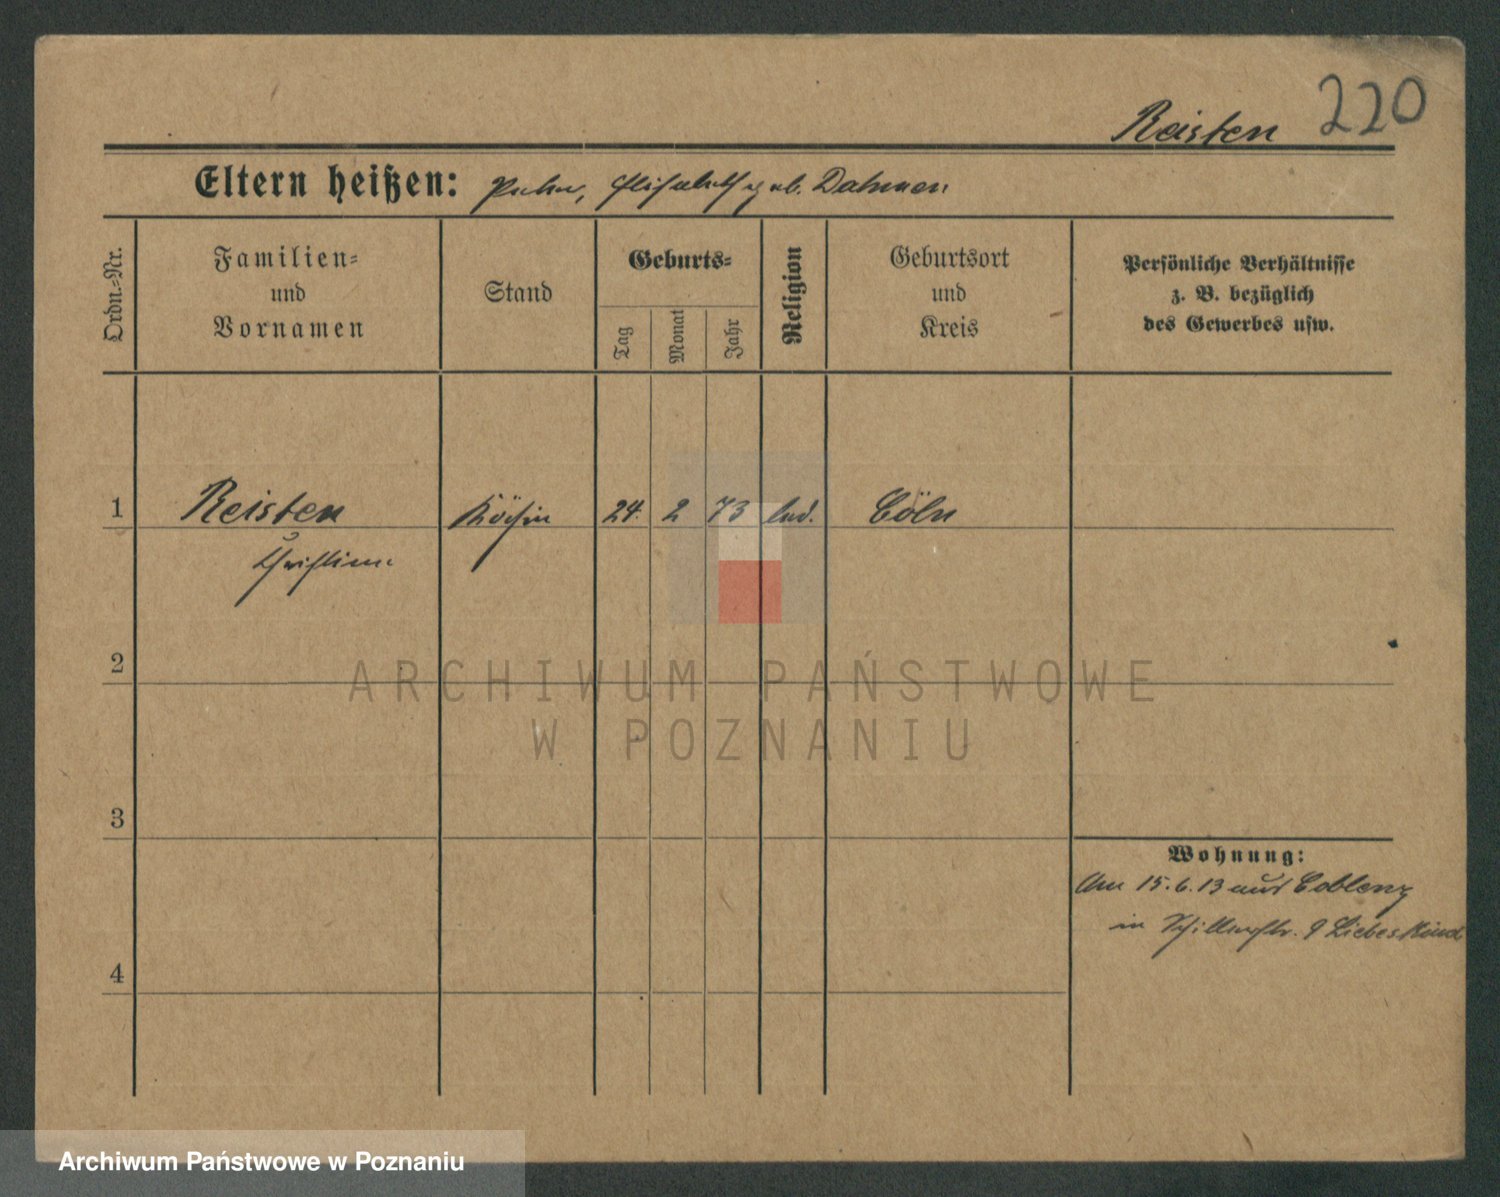 220
Reisten
Eltern heißen: Peter, Elisabeth geb. Dahmen
Ordn.-Nr.
Familien-
und
Vornamen
Stand
Geburts-
Tag
Monat
Jahr
Religion
Geburtsort
und
Kreis
Persönliche Verhältnisse
z. B. bezüglich
des Gewerbes usw.
1 Reisten Köchin 24. 2 73 Cöln
Christine
2
ARCHIWUM PAŃSTWOWE
W POZNANIU
3
Wohnung:
Am 15.6.13 aus Coblenz
in Schillerstr. 9 Liebeskind
4
Archiwum Państwowe w Poznaniu